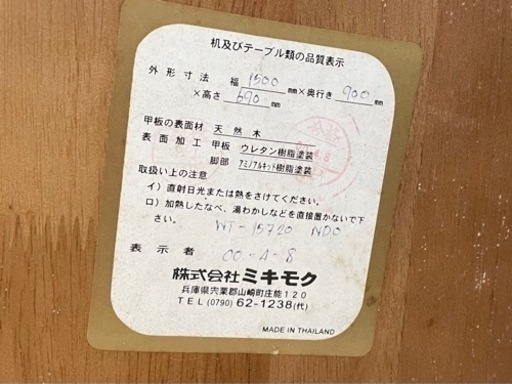 机及びテーブル類の品質表示
外形寸法 幅 1500 mm×奥行き 900 mm
×高さ 690 mm
甲板の表面材 天然木
表面加工 甲板 ウレタン樹脂塗装
脚部 アミノアルキット樹脂塗装
取扱い上の注意
イ）直射日光または熱をさけてください。
ロ）加熱したなべ、湯わかしなどを直接置かないで下
さい。
WT-15720 NDO
表示者 00-4-8
株式会社ミキモク
兵庫県宍粟郡山崎町庄能120
TEL (0790) 62-1238(代)
MADE IN THAILAND